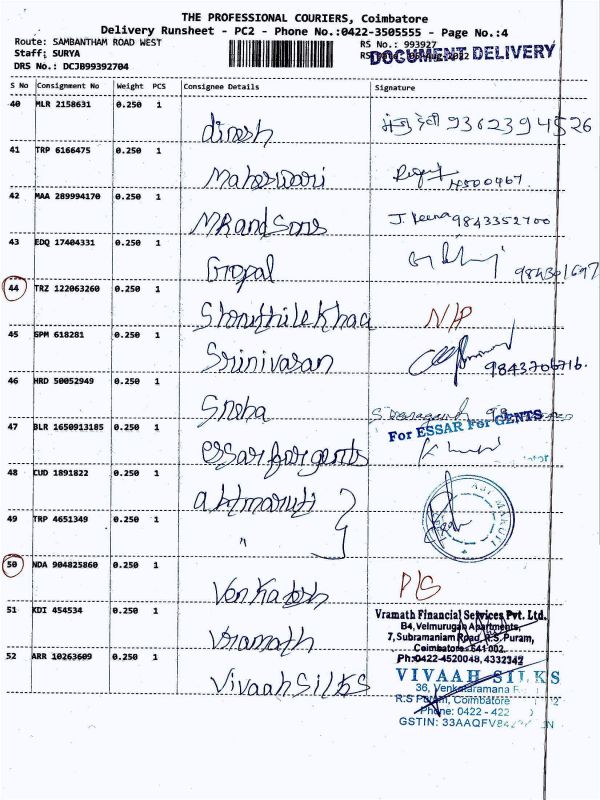 THE PROFESSIONAL COURIERS, Coimbatore
Delivery Runsheet - PC2 - Phone No.:0422-3505555 - Page No.:4
Route: SAMBANTHAM ROAD WEST
RS No.: 993927
Staff: SURYA
DOCUMENT DELIVERY
DRS No.: DCJB99392704
S No Consignment No Weight PCS Consignee Details Signature
40 MLR 2158631 0.250 1
dinesh 9362394526
41 TRP 6166475 0.250 1
Maheswari
42 MAA 289994170 0.250 1
MR and Sons J. Leena 9843352700
43 EDQ 17404331 0.250 1
Gopal 984301697
44 TRZ 122063260 0.250 1
Shruthilekhaa N/P
45 GPM 618281 0.250 1
Srinivasan 9843706716.
46 HRD 50052949 0.250 1
Sneha
47 BLR 1650913185 0.250 1
For ESSAR For GENTS
essar for gents
48 CUD 1891822 0.250 1
abtmaruti
ABT MARUTI
49 TRP 4651349 0.250 1
"
50 NDA 904825860 0.250 1
Venkatesh D/S
51 KDI 454534 0.250 1
Vramath
Vramath Financial Services Pvt. Ltd.
B4, Velmurugan Apartments,
7, Subramaniam Road, R.S. Puram,
Coimbatore - 641 002.
Ph:0422-4520048, 4332342
52 ARR 10263609 0.250 1
Vivaah Silks
VIVAAH SILKS
36, Venkataramana
R.S Puram, Coimbatore
Phone: 0422 - 422
GSTIN: 33AAQFV84